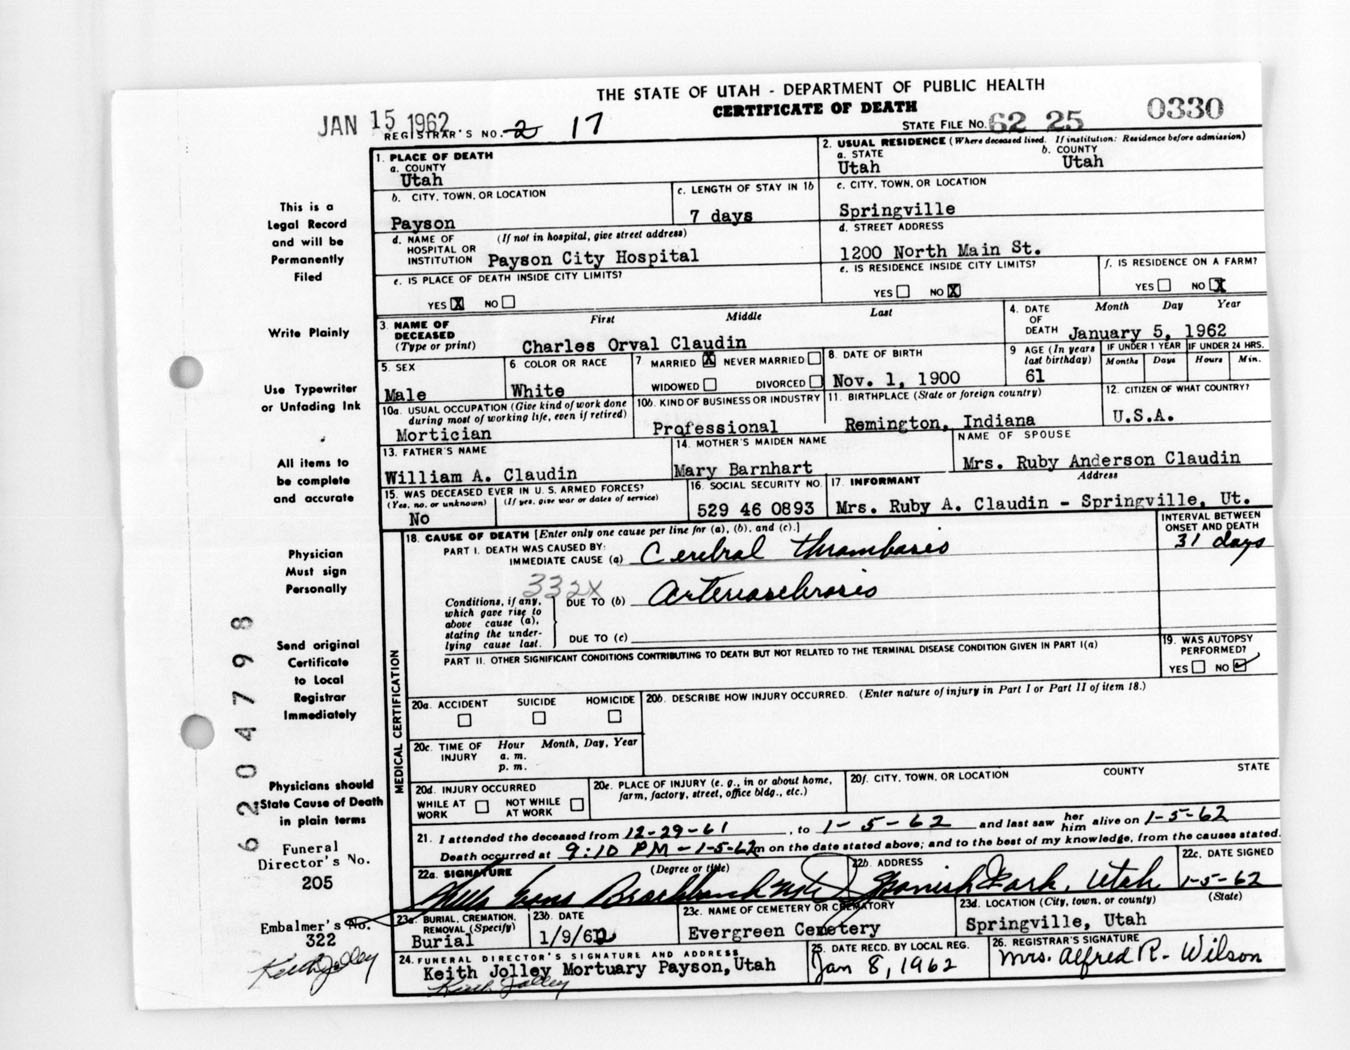 THE STATE OF UTAH - DEPARTMENT OF PUBLIC HEALTH
CERTIFICATE OF DEATH
JAN 15 1962
REGISTRAR'S NO. 2 17
STATE FILE NO. 62 25 0330
This is a
Legal Record
and will be
Permanently
Filed
Write Plainly
Use Typewriter
or Unfading Ink
All items to
be complete
and accurate
Physician
Must sign
Personally
Send original
Certificate
to Local
Registrar
Immediately
Physicians should
State Cause of Death
in plain terms
Funeral
Director's No.
205
Embalmer's No.
322
Keith Jolley
6204798
1. PLACE OF DEATH
a. COUNTY
Utah
2. USUAL RESIDENCE (Where deceased lived. If institution: Residence before admission)
a. STATE
b. COUNTY
Utah
Utah
b. CITY, TOWN, OR LOCATION
c. LENGTH OF STAY IN 1b
Payson
7 days
c. CITY, TOWN, OR LOCATION
Springville
d. NAME OF HOSPITAL OR INSTITUTION (If not in hospital, give street address)
Payson City Hospital
d. STREET ADDRESS
1200 North Main St.
e. IS PLACE OF DEATH INSIDE CITY LIMITS?
YES X NO
e. IS RESIDENCE INSIDE CITY LIMITS?
YES NO X
f. IS RESIDENCE ON A FARM?
YES NO X
3. NAME OF DECEASED (Type or print)
First Middle Last
Charles Orval Claudin
4. DATE OF DEATH
Month Day Year
January 5, 1962
5. SEX
Male
6 COLOR OR RACE
White
7 MARRIED X NEVER MARRIED
WIDOWED DIVORCED
8. DATE OF BIRTH
Nov. 1, 1900
9 AGE (In years last birthday)
61
IF UNDER 1 YEAR
Months Days
IF UNDER 24 HRS.
Hours Min.
10a. USUAL OCCUPATION (Give kind of work done during most of working life, even if retired)
Mortician
10b. KIND OF BUSINESS OR INDUSTRY
Professional
11. BIRTHPLACE (State or foreign country)
Remington, Indiana
12. CITIZEN OF WHAT COUNTRY?
U.S.A.
13. FATHER'S NAME
William A. Claudin
14. MOTHER'S MAIDEN NAME
Mary Barnhart
NAME OF SPOUSE
Mrs. Ruby Anderson Claudin
15. WAS DECEASED EVER IN U. S. ARMED FORCES?
(Yes, no, or unknown) (If yes, give war or dates of service)
No
16. SOCIAL SECURITY NO.
529 46 0893
17. INFORMANT Address
Mrs. Ruby A. Claudin - Springville, Ut.
18. CAUSE OF DEATH [Enter only one cause per line for (a), (b), and (c).]
INTERVAL BETWEEN ONSET AND DEATH
PART I. DEATH WAS CAUSED BY:
IMMEDIATE CAUSE (a) Cerebral thrombosis
31 days
332X
Conditions, if any, which gave rise to above cause (a), stating the underlying cause last.
DUE TO (b) Arteriosclerosis
DUE TO (c)
PART II. OTHER SIGNIFICANT CONDITIONS CONTRIBUTING TO DEATH BUT NOT RELATED TO THE TERMINAL DISEASE CONDITION GIVEN IN PART I(a)
19. WAS AUTOPSY PERFORMED?
YES NO
MEDICAL CERTIFICATION
20a. ACCIDENT SUICIDE HOMICIDE
20b. DESCRIBE HOW INJURY OCCURRED. (Enter nature of injury in Part I or Part II of item 18.)
20c. TIME OF INJURY
Hour Month, Day, Year
a. m.
p. m.
20d. INJURY OCCURRED
WHILE AT WORK NOT WHILE AT WORK
20e. PLACE OF INJURY (e. g., in or about home, farm, factory, street, office bldg., etc.)
20f. CITY, TOWN, OR LOCATION COUNTY STATE
21. I attended the deceased from 12-29-61, to 1-5-62 and last saw her him alive on 1-5-62
Death occurred at 9:10 PM - 1-5-62 m on the date stated above; and to the best of my knowledge, from the causes stated.
22a. SIGNATURE (Degree or title)
22b. ADDRESS
Spanish Fork, Utah
22c. DATE SIGNED
1-5-62
23a. BURIAL, CREMATION, REMOVAL (Specify)
Burial
23b. DATE
1/9/62
23c. NAME OF CEMETERY OR CREMATORY
Evergreen Cemetery
23d. LOCATION (City, town, or county) (State)
Springville, Utah
24. FUNERAL DIRECTOR'S SIGNATURE AND ADDRESS
Keith Jolley Mortuary Payson, Utah
Keith Jolley
25. DATE RECD. BY LOCAL REG.
Jan 8, 1962
26. REGISTRAR'S SIGNATURE
Mrs. Alfred R. Wilson